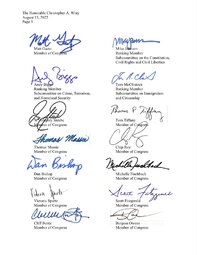 The Honorable Christopher A. Wray
August 17, 2023
Page 5
Matt Gaetz
Member of Congress
Mike Johnson
Ranking Member
Subcommittee on the Constitution,
Civil Rights and Civil Liberties
Andy Biggs
Ranking Member
Subcommittee on Crime, Terrorism,
and Homeland Security
Tom McClintock
Ranking Member
Subcommittee on Immigration and
Citizenship
Member of Congress
Tom Tiffany
Member of Congress
Thomas Massie
Thomas Massie
Member of Congress
Chip Roy
Member of Congress
Dan Bishop
Dan Bishop
Member of Congress
Michelle Fischbach
Michelle Fischbach
Member of Congress
Victoria Spartz
Member of Congress
Scott Fitzgerald
Scott Fitzgerald
Member of Congress
Cliff Bentz
Member of Congress
Burgess Owens
Member of Congress